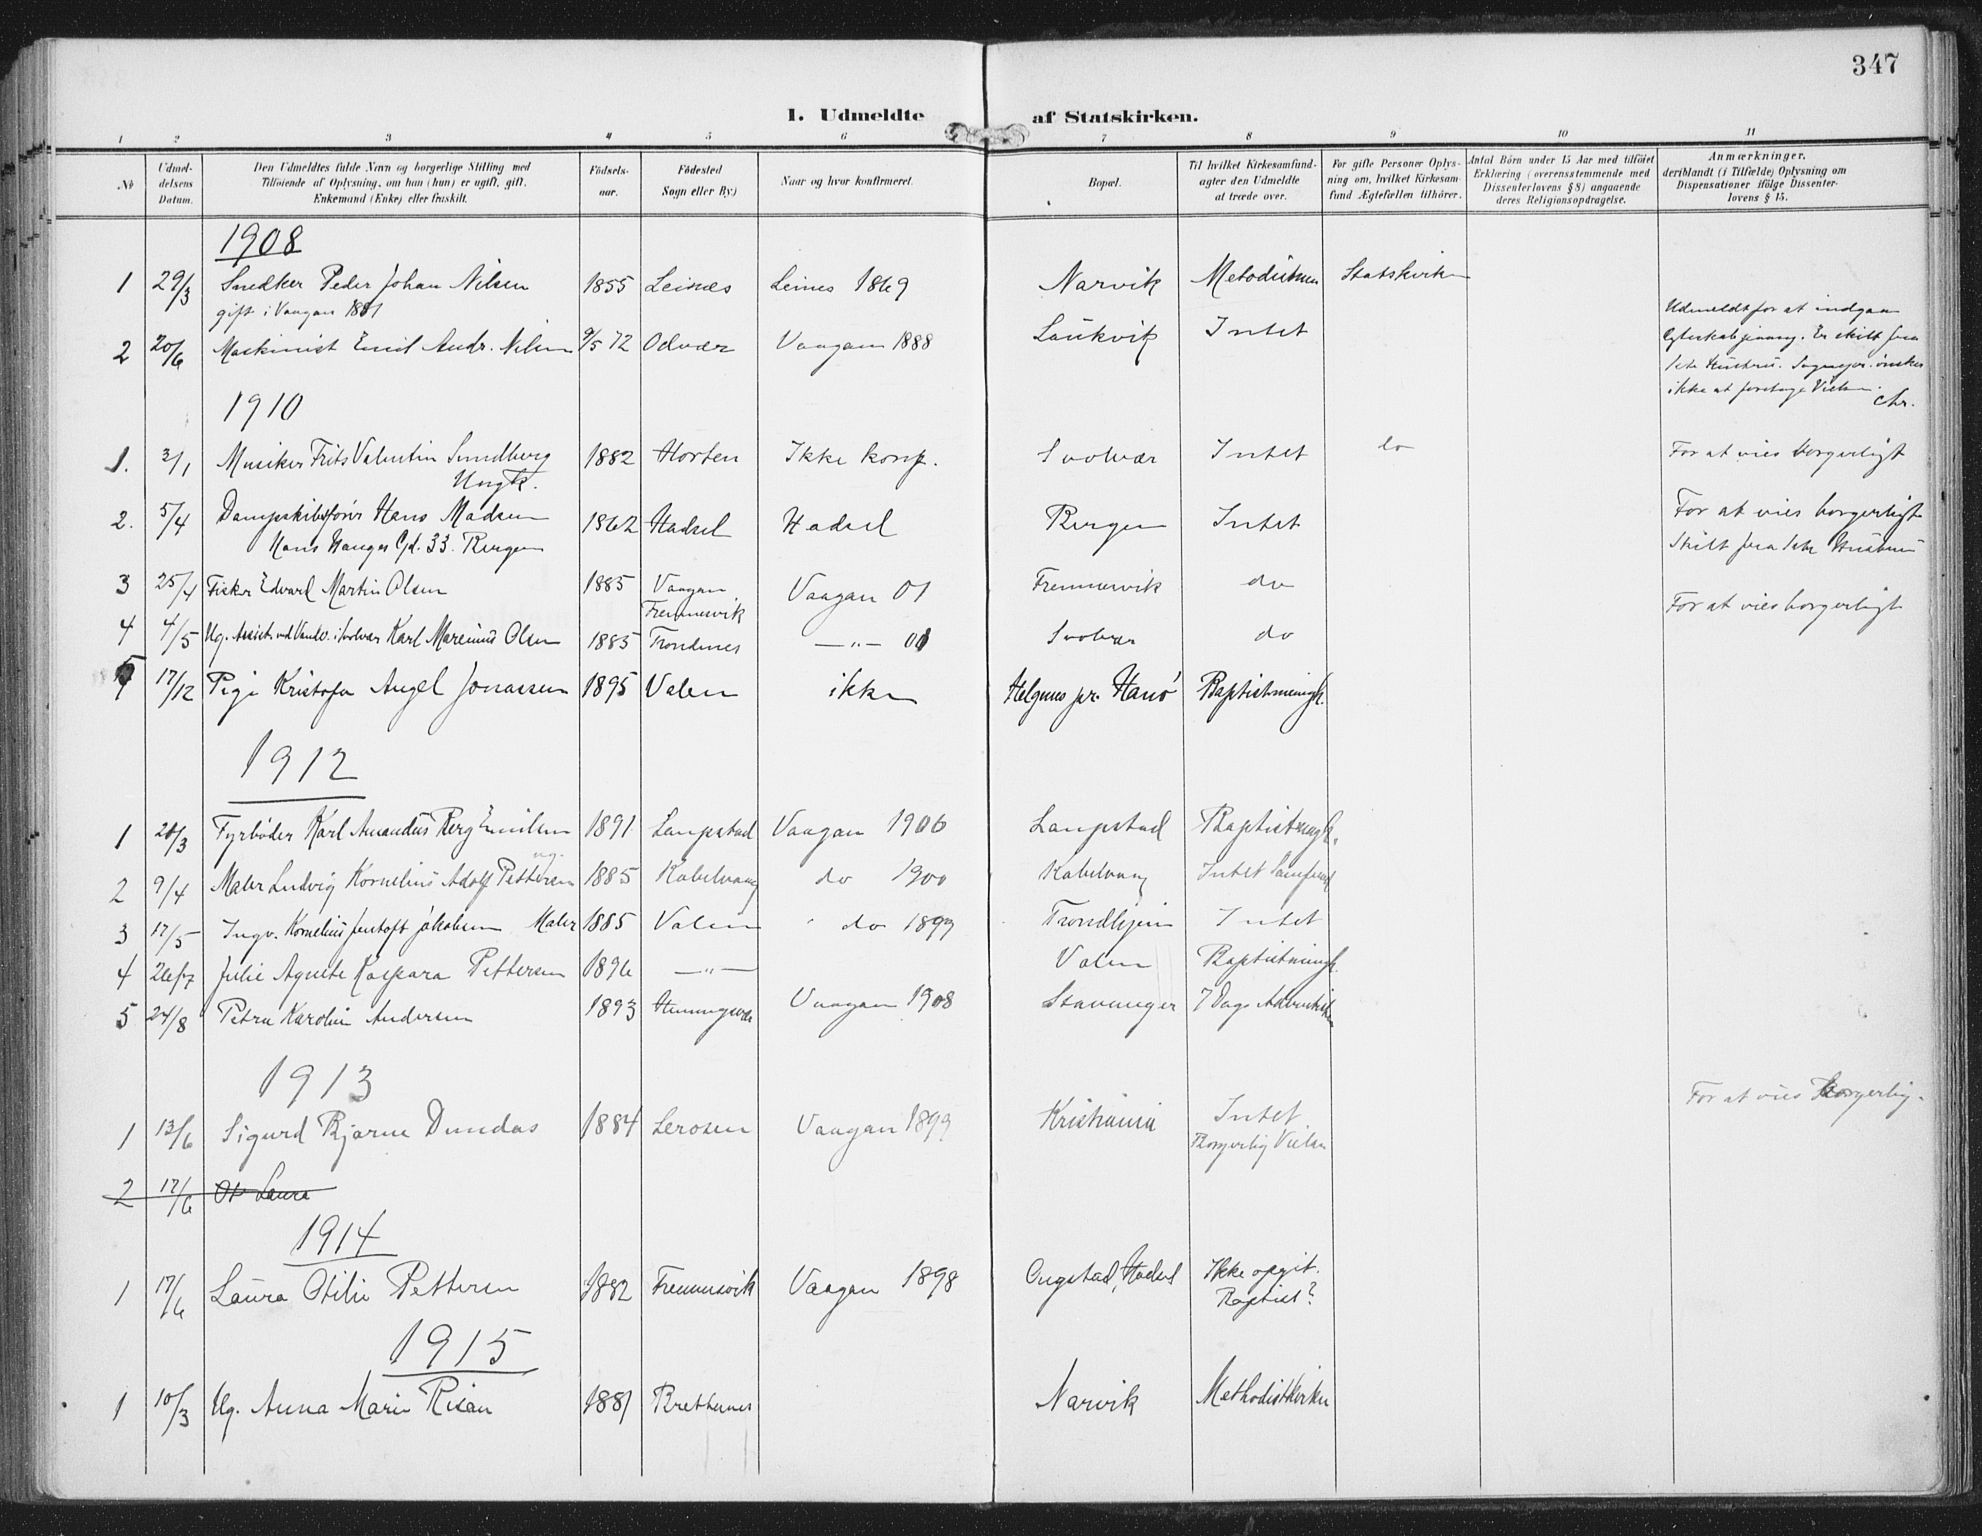 347
I. Udmeldte af Statskirken.
1 2 3 4 5 6 7 8 9 10 11
No
Udmel-
delsens
Datum.
Den Udmeldtes fulde Navn og borgerlige Stilling med
Tilføiende af Oplysning, om han (hun) er ugift, gift,
Enkemand (Enke) eller fraskilt.
Fødsels-
aar.
Fødested
Sogn eller By.)
Naar og hvor konfirmeret.
Bopæl.
Til hvilket Kirkesamfund-
agter den Udmeldte
at træde over.
For gifte Personer Oplys-
ning om, hvilket Kirkesam-
fund Ægtefællen tilhører.
Antal Børn under 15 Aar med tilføiet
Erklæring (overensstemmende med
Dissenterlovens § 8) angaaende
deres Religionsopdragelse.
Anmærkninger,
deriblandt (i Tilfælde) Oplysning om
Dispensationer ifølge Dissenter-
lovens § 15.
1908
1 29/3 Snedker Peder Johan Nilsen 1855 Leines Leines 1869 Narvik Metodistmen Statskirken
gift i Vaagan 1881
2 20/6 Maskinist Emil Andr. Nilsen 9/5 72 Odvær Vaagan 1888 Laukvik Intet
Udmeldt for at indgaa
Egteskab. Er skilt fra
1ste Hustru. ønsker
ikke at foretage Vielsen.
Chr.
1910
1. 3/1 Musiker Frits Valentin Sundberg 1882 Horten Ikke konf. Svolvær Intet do For at vies borgerligt
Ungk.
2. 5/4 Dampskibsfører Hans Madsen 1862 Hadsel Hadsel Bergen Intet For at vies borgerligt
Hans Hauges G/d. 33. Bergen Skilt fra 1ste Hustru
3 25/4 Fisker Edvard Martin Olsen 1885 Vaagan Vaagan 01 Fremmervik do
Fremmervik For at vies borgerligt
4 4/5 Ug. Assist. ved i Svolvær Karl Marenius Olsen 1885 Trondenes —"— 01 Svolvær do
5 17/12 Pige Kristofa Angel Jonassen 1895 Valen ikke Helgenes pr. Hanø Baptistmenigh.
1912
1 20/3 Fyrbøder Karl Amandus Berg Emilsen 1891 Laupstad Vaagan 1906 Laupstad Baptistmengh.
ug.
2 9/4 Maler Ludvig Kornelius Adolf Pettersen 1885 Kabelvaag do 1900 Kabelvaag Intet Samfund
3 17/5 Ingv. Kornelius Jentoft Jakobsen Maler 1885 Valen do 1899 Trondhjem Intet
4 26/7 Julie Agnete Kaspara Pettersen 1896 —"— Valen Baptistmenigh.
5 24/8 Petra Karolin Andersen 1893 Henningsvær Vaagan 1908 Stavanger 7 Dags Adventister
1913
1 13/6 Sigurd Bjarne Dundas 1884 Lerosen Vaagan 1899 Kristiania Intet For at vies Borgerlig.
Borgerlig Vielse
2 17/6 Ot Laura
1914
1 17/6 Laura Otilie Pettersen 1882 Fremmervik Vaagan 1898 Ongstad, Hadsel Ikke opgit.
Baptist?
1915
1 10/3 Ug. Anna Marie Risan 1881 Brettesnes Narvik Methodistkirken